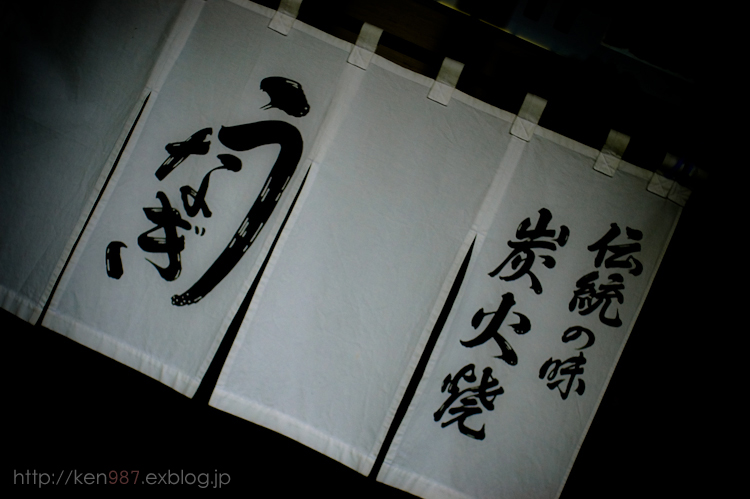 伝統の味
炭火焼
うなぎ
http://ken987.exblog.jp